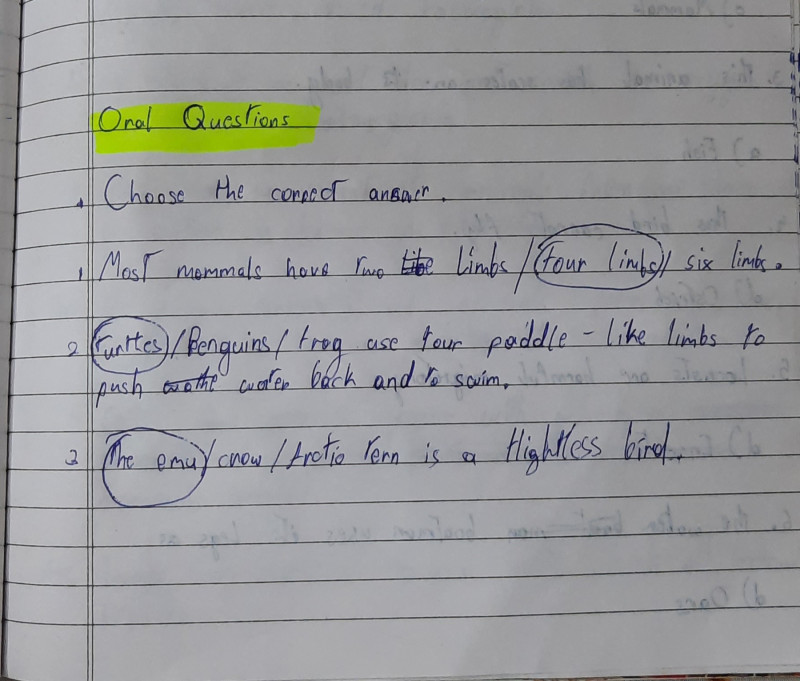 Oral Questions
1. Choose the correct answer.
1 Most mammals have two limbs / four limbs / six limbs.
2 Turtles / Penguins / frog use four paddle - like limbs to
push water back and to swim.
3 The emu / crow / Arctic tern is a flightless bird.